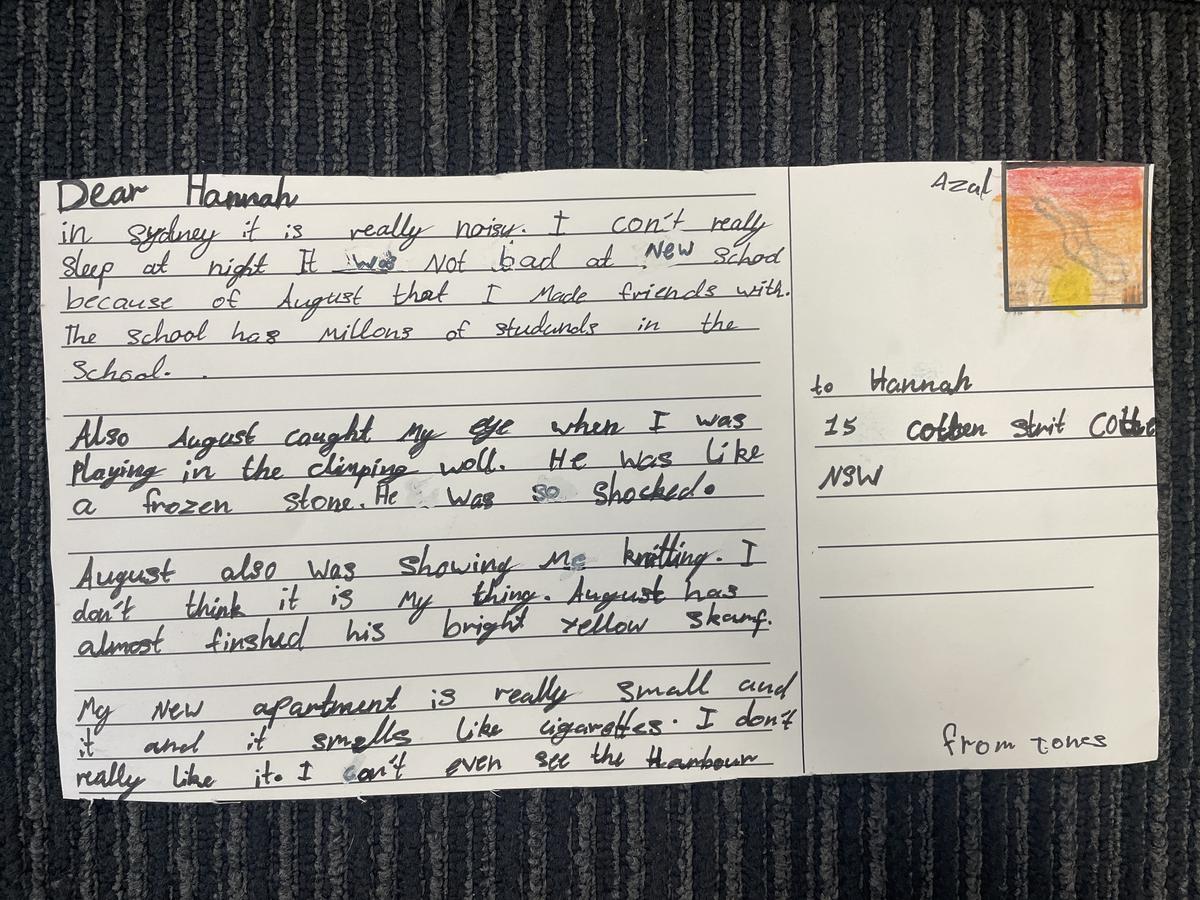 Dear Hannah
in Sydney it is really noisy. I con't really
sleep at night It was Not bad at New School
because of August that I Made friends with.
The school has Millons of studunds in the
School.
Also August caught My eye when I was
Playing in the climping woll. He was Like
a frozen stone. He was so shocked.
August also was showing Me knitting. I
don't think it is My thing. August has
almost finshed his bright yellow skarf.
My New apartment is really small and
it and it smells like cigarattes. I don't
really like it. I can't even see the Harbour
Azal
to Hannah
15 cotten strit Cotte
NSW
from Tones